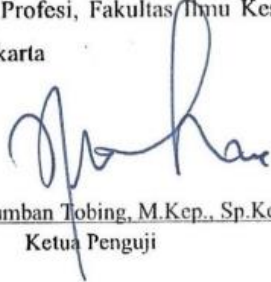 Profesi, Fakultas Ilmu Kes
karta
mban Tobing, M.Kep., Sp.Ko
Ketua Penguji